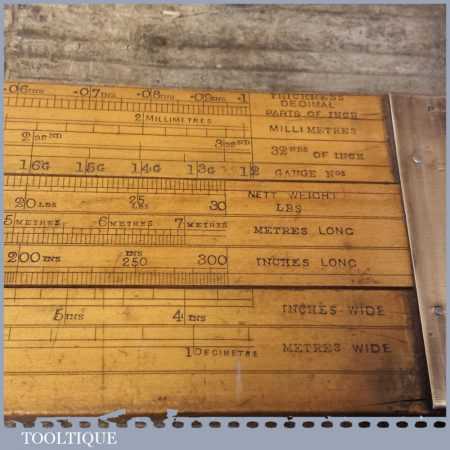 ·06INS ·07INS ·08INS ·09INS ·1 THICKNESS
DECIMAL
PARTS OF INCH
2 MILLIMETRES MILLIMETRES
2 32ND 3 32ND 32NDS OF INCH
16G 15G 14G 13G 12 GAUGE NOS
NETT WEIGHT
20LBS 25LBS 30 LBS
5 METRES 6 METRES 7 METRES METRES LONG
200INS 250INS 300 INCHES LONG
5INS 4INS INCHES WIDE
1 DECIMETRE METRES WIDE
TOOLTIQUE